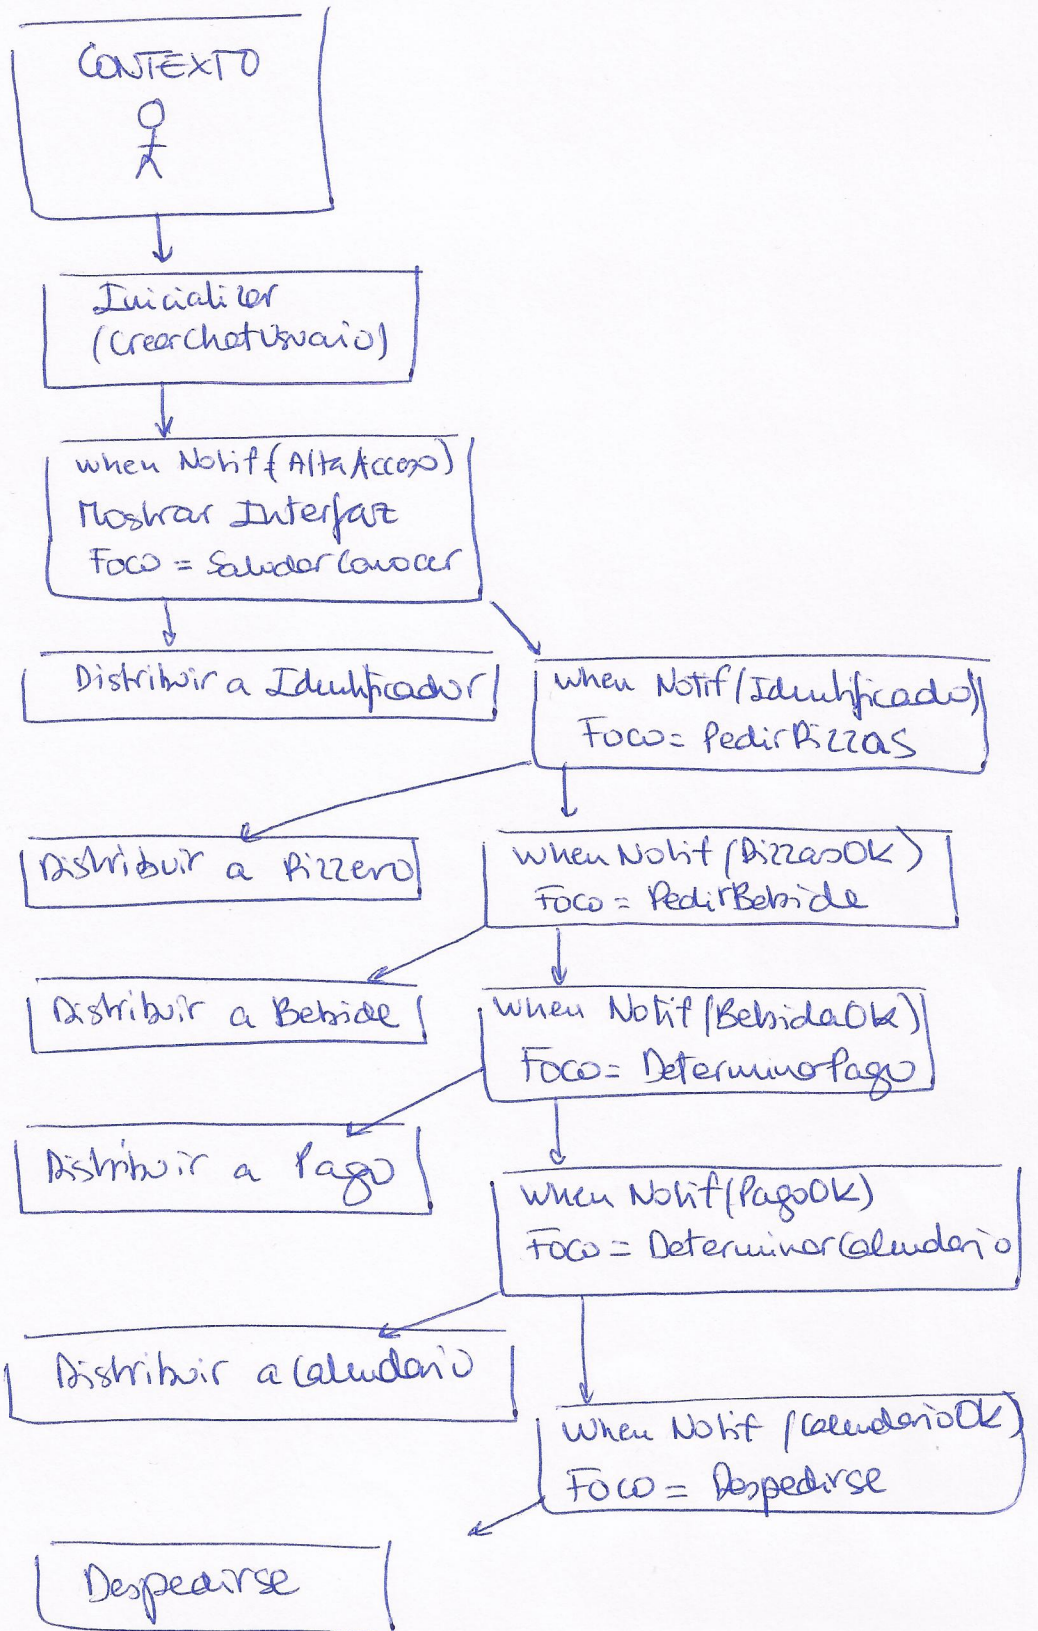 CONTEXTO
Inicializar
(CrearChatUsuaio)
when Notif(AltaAcceso)
Mostrar Interfaz
Foco = SaludarConocer
Distribuir a Identificador
when Notif(Identificado)
Foco = PedirPizzas
Distribuir a Pizzero
when Notif(PizzasOK)
Foco = PedirBebida
Distribuir a Bebida
when Notif(BebidaOk)
Foco = DeterminarPago
Distribuir a Pago
when Notif(PagoOk)
Foco = DeterminarCalendario
Distribuir a Calendario
when Notif (CalendarioOk)
Foco = Despedirse
Despedirse